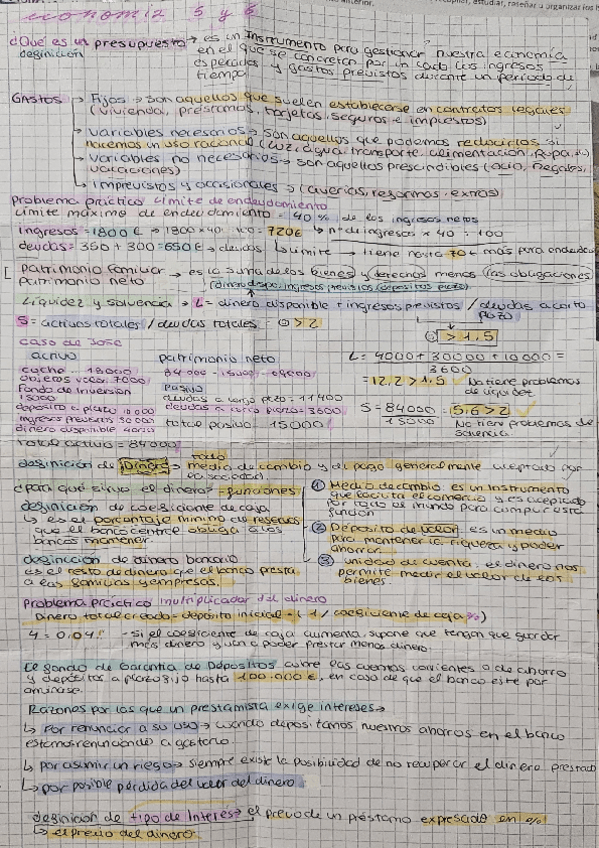 economia 5 y 6
¿Qué es un presupuesto → es un Instrumento para gestionar nuestra economía
definición en el que se concretan por un lado los ingresos
esperados y gastos previstos durante un periodo de
tiempo
Gastos → Fijos → son aquellos que suelen establecerse en contratos legales
(vivienda, préstamos, tarjetas, seguros e impuestos)
→ variables necesarios → son aquellos que podemos reducirlos si
hacemos un uso racional (luz, agua, transporte, alimentación, Ropa,
→ variables no necesarios → son aquellos prescindibles (ocio, Regalos,
vacaciones)
→ imprevistos y occasionales → (averias, reformas, extras)
Problema práctico límite de endeudamiento
Límite máximo de endeudamiento = 40% de los ingresos netos
ingresos = 1800 € → 1800 x 40 : 100 = 720€ → nº de ingresos x 40 : 100
deudas = 350 + 300 = 650€ → deudas → Límite → tiene hasta 70€ más para endeudar
[ Patrimonio familiar → es la suma de los bienes y derechos menos las obligaciones
Patrimonio neto
Liquidez y solvencia → L = dinero disponible + ingresos previstos / deudas a corto
plazo
S = activos totales / deudas totales = > 2
> 1.5
caso de José
activo patrimonio neto L = 4000 + 30000 + 10000 =
3600
coche 18000
objetos valor 7000 pasivo = 12,2 > 1.5 No tiene problemas
de liquidez
Fondo de inversión deudas a largo plazo = 11400
15000 deudas a corto plazo = 3600 S = 84000 = 5,6 > 2
deposito a plazo 10000 total pasivo 15000 15000 No tiene problemas de
solvencia
ingresos previstos 30000
dinero disponible 4000
Total activo = 84000
definición de Dinero → medio de cambio y de pago generalmente aceptado por
la sociedad
¿para qué sirve el dinero? - funciones
① Medio de cambio y es un instrumento
que facilita el comercio y es aceptado
por todo el mundo para cumplir esta
función
definición de coeficiente de caja
↳ es el porcentaje mínimo de reservas
que el banco central obliga a los
bancos mantener.
② Depósito de valor es un medio
para mantener la riqueza y poder
ahorrar.
definición de dinero bancario
es el resto de dinero que el banco presta
a las familias y empresas.
③ unidad de cuenta. el dinero nos
permite medir el valor de los
bienes.
Problema práctico multiplicador del dinero
Dinero total creado = depósito inicial · (1 / coeficiente de caja %)
4 = 0.04! - si el coeficiente de caja aumenta, supone que tengan que guardar
más dinero y van a poder prestar menos dinero.
El fondo de Garantia de Depósitos cubre las cuentas corrientes o de ahorro
y depósitos a plazo fijo hasta 100.000 €, en caso de que el banco
Razones por las que un prestamista exige intereses →
↳ Por renunciar a su uso → cuando depositamos nuestros ahorros en el banco
estamos renunciando a gastarlo.
↳ por asumir un riesgo → siempre existe la posibilidad de no recuperar el dinero prestado
↳ por posible pérdida del valor del dinero
definición de tipo de interés → el precio de un préstamo expresado en %
↳ el precio del dinero.